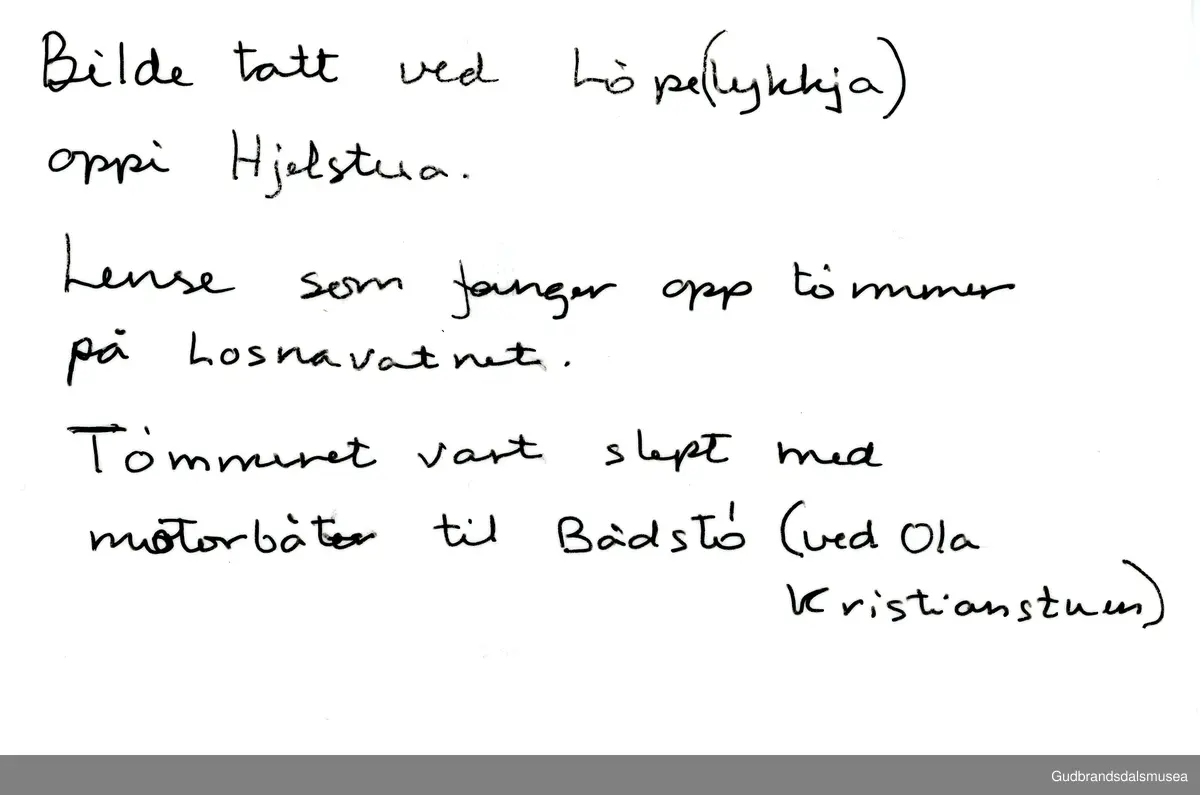 Bilde tatt ved Løpe(lykkja)
oppi Hjelstua.
Lense som fanger opp tømmer
på Losnavatnet.
Tømmeret vart slept med
motorbåter til Bådstø (ved Ola
Kristianstuen)
Gudbrandsdalsmusea